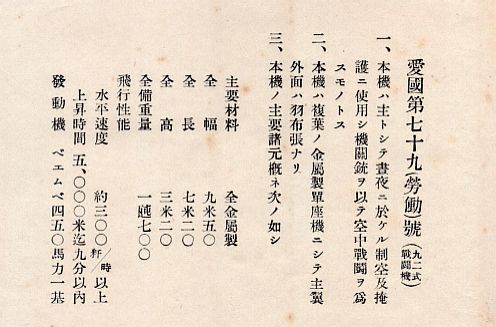 愛國第七十九(勞働)號(九二式戰鬪機)
一、本機ハ主トシテ晝夜ニ於ケル制空及掩
護ニ使用シ機關銃ヲ以テ空中戰鬪ヲ爲
スモノトス
二、本機ハ複葉ノ金屬製單座機ニシテ主翼
外面ハ羽布張ナリ
三、本機ノ主要諸元概ネ次ノ如シ
主要材料 全金屬製
全幅 九米五〇
全長 七米二〇
全高 三米二〇
全備重量 一瓲七〇〇
飛行性能
水平速度 約三〇〇粁/時以上
上昇時間 五、〇〇〇米迄九分以內
發動機 ベエムベ四五〇馬力一基